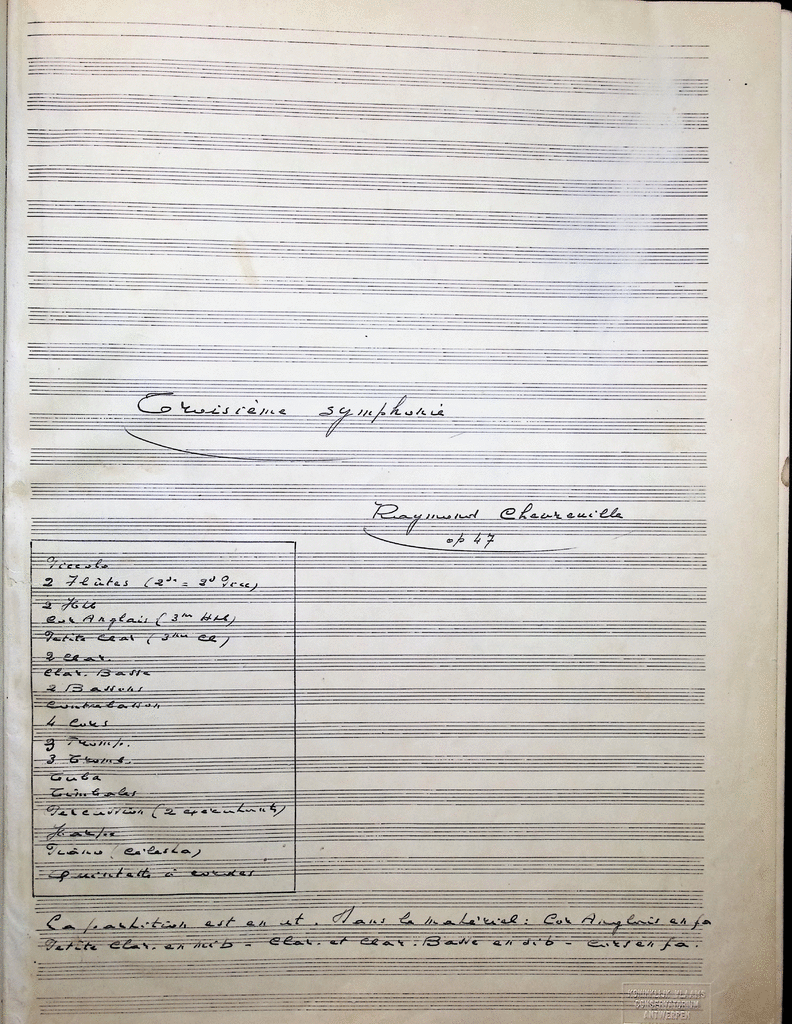 Troisième symphonie
Raymond Chevreuille
op 47
Piccolo
2 Flûtes (2de = 2d Picc)
2 Htb
Cor Anglais (3me Htb)
Petite Clar (3me Cl)
2 Clar.
Clar. Basse
2 Bassons
Contrebasson
4 Cors
3 Tromp.
3 Tromb.
Tuba
Timbales
Percussion (2 exécutants)
Harpe
Piano (Célesta)
Quintette à cordes
La partition est en ut. Dans le matériel: Cor Anglais en fa
Petite Clar. en mib - Clar. et Clar. Basse en sib - Cors en fa.
KONINKLIJK VLAAMS
CONSERVATORIUM
ANTWERPEN